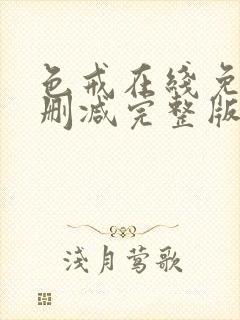 色戒在线免
删减完整版
浅月莺歌